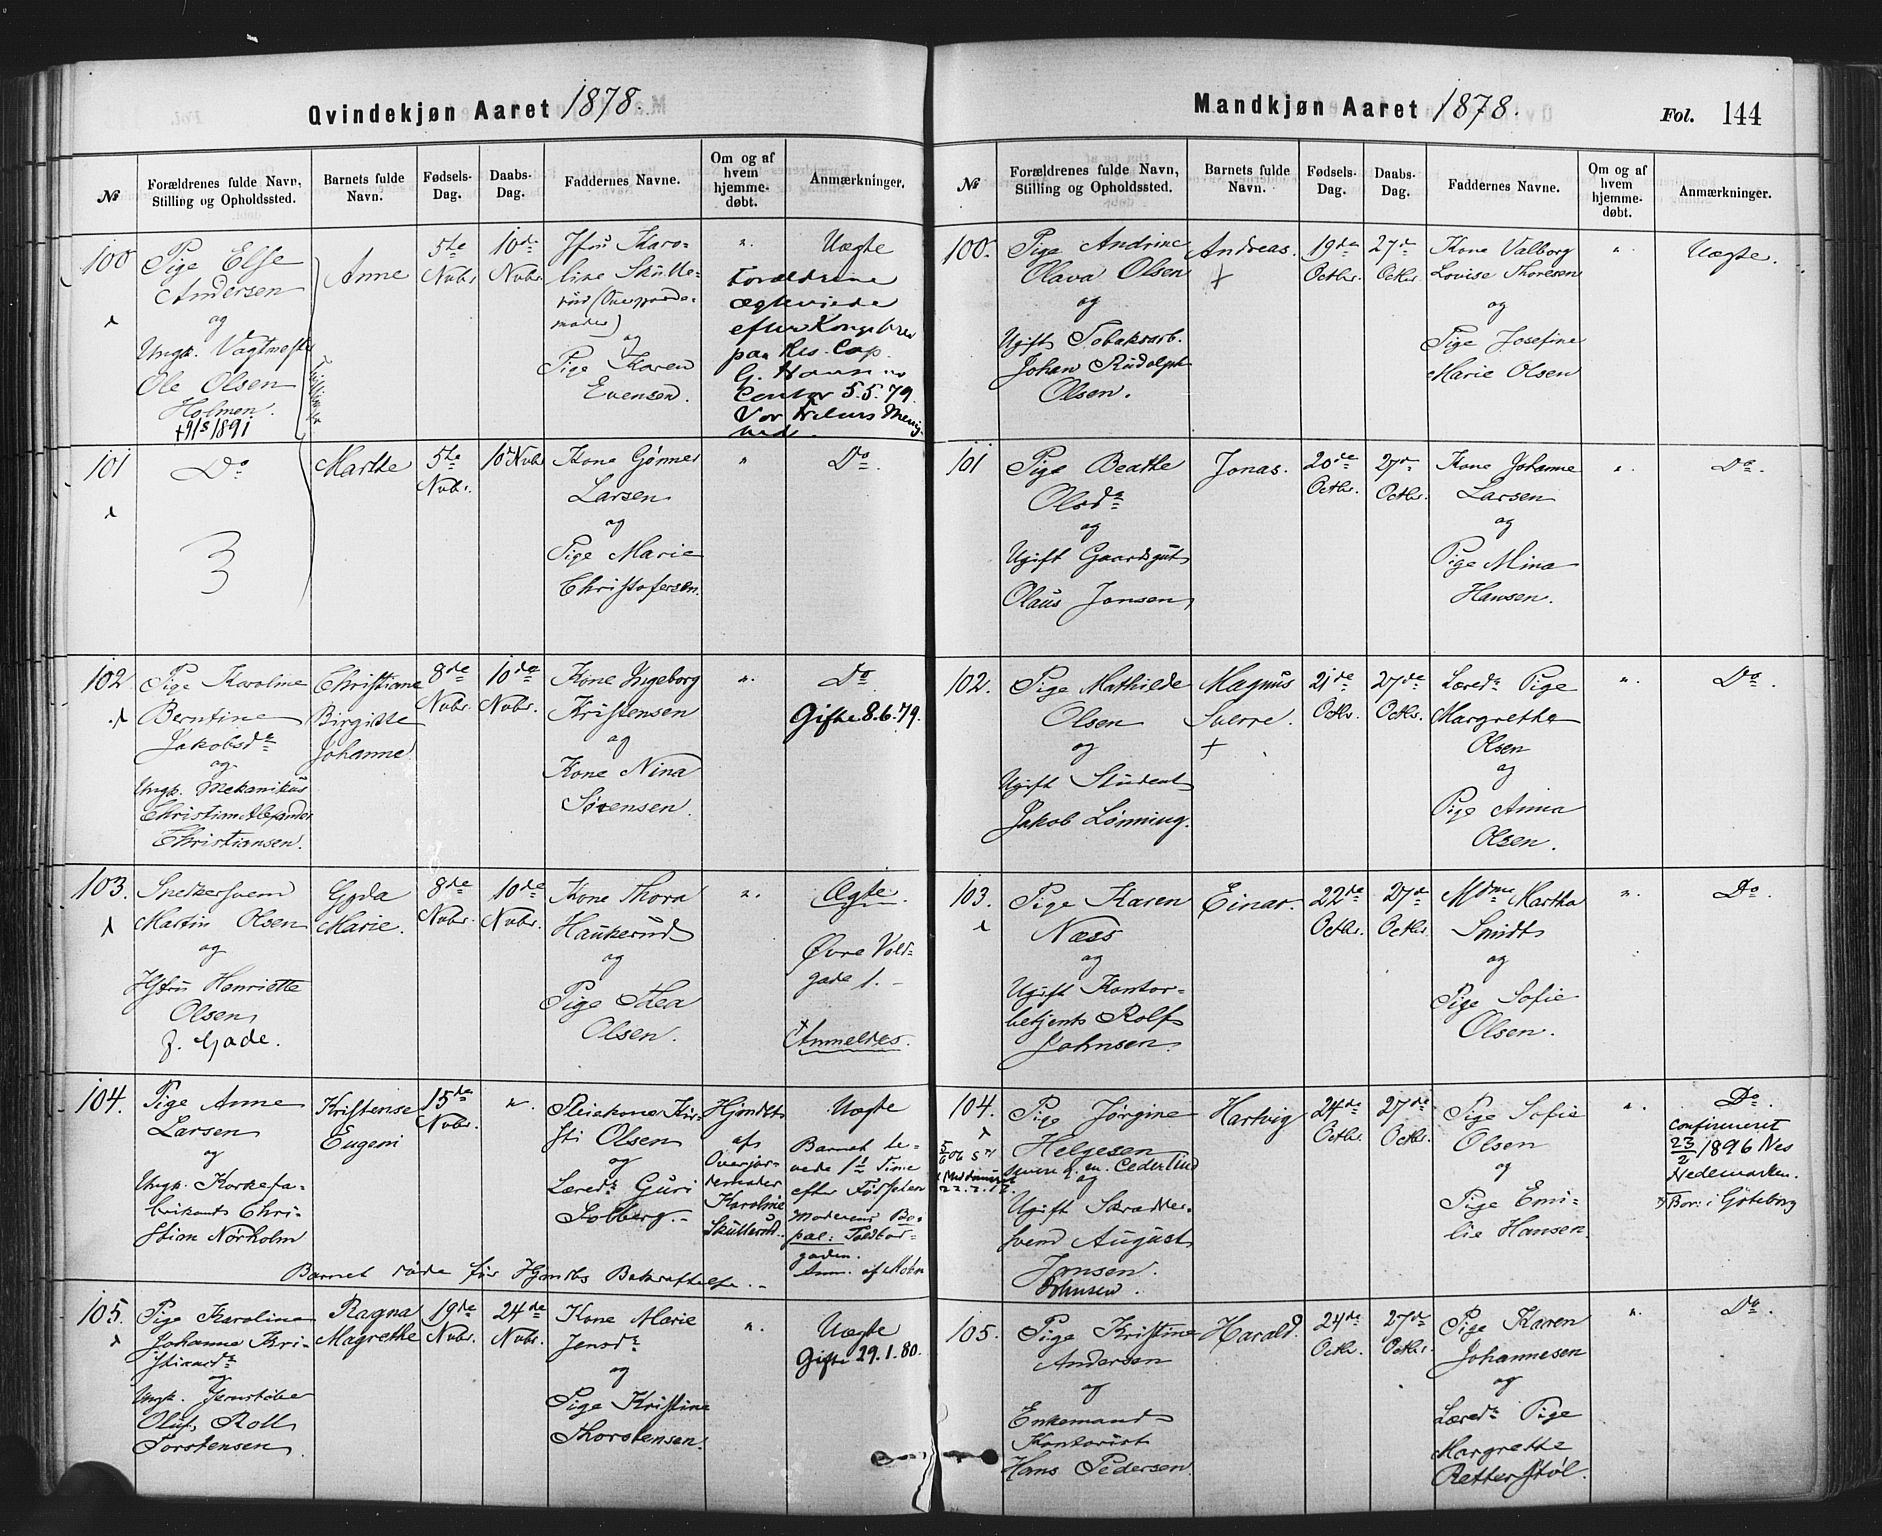 Qvindekjøn Aaret 1878.
№
Forældrenes fulde Navn,
Stilling og Opholdssted.
Barnets fulde
Navn.
Fødsels-
Dag.
Daabs-
Dag.
Faddernes Navne.
Om og af
hvem
hjemme-
døbt.
Anmærkninger.
100
Pige Else
Andersen
og
Ungk. Vagtmester
Ole Olsen
Holmen.
Anne
5te
Novbr.
10de
Novbr.
Jfru Karo-
line Skulle-
rud
og
Pige Karen
Evensen.
"
Uægte
Forældrene
ægteviede
efter Kongebrev
paa Res. Cap.
G. Havns
Contor 5.5.79.
Vor Frelsers Menig-
hed.
101
Do
3
Marthe
5te
Novbr.
10 Novbr
Kone Gønner
Larsen
og
Pige Marie
Christofersen.
"
Do.
102
Pige Karoline
Berntine
Jakobsda
og
Ungk. Mekanikus
Christian Alexander
Christiansen.
Christiane
Birgitte
Johanne
8de
Novbr.
10de
Novbr.
Kone Ingeborg
Kristensen
og
Kone Nina
Sørensen.
"
Do
Gifte 8.6.79.
103.
Snekkersvend
Martin Olsen
og
Hstru Henriette
Olsen
f. Gade.
Gyda
Marie.
8de
Novbr.
10de
Novbr.
Kone Thora
Haukerud
og
Pige Thea
Olsen.
"
Ægte.
Øvre Vold-
gade 1.
Anmeldes.
104.
Pige Anne
Larsen
og
Ungk. Korkefa-
brikant Chri-
stian Nørholm
Kristense
Eugeni
15de
Novbr.
"
Pleiekone Kir-
sti Olsen
og
Læreda Guri
Solberg.
Hjemdøbt
af
Overjor-
demoder
Karoline
Skullerud.
Uægte
Barnet le-
vede 1½ Time
efter Fødselen
Moderens Bo-
pæl: Toldbod-
gaden.
Anm. af Mdr
Barnet døde før Hjemdbs Bekræftelse.
105.
Pige Karoline
Johanne Kri-
stiansda
og
Ungk. Jernstøber
Oluf Roll
Torstensen
Ragna
Magrethe
19de
Novbr.
24de
Novbr.
Kone Marie
Jensda
og
Pige Kristine
Thorstensen.
"
Uægte
Gifte 29.1.80.
Mandkjøn Aaret 1878.
Fol. 144
№
Forældrenes fulde Navn,
Stilling og Opholdssted.
Barnets fulde
Navn.
Fødsels-
Dag.
Daabs-
Dag.
Faddernes Navne.
Om og af
hvem
hjemme-
døbt.
Anmærkninger.
100.
Pige Andrine
Olava Olsen
og
Ugift Tobaksarb.
Johan Rudolph
Olsen.
Andreas.
+
19de
Octbr.
27de
Octbr.
Kone Valborg
Lovise Thoresen
og
Pige Josefine
Marie Olsen
"
Uægte.
101
Pige Beathe
Olsda
og
Ugift Gaardsgut
Olaus Jonsen
Jonas.
20de
Octbr.
27de
Octbr.
Kone Johanne
Larsen
og
Pige Mina
Hansen.
"
Do.
102.
Pige Mathilde
Olsen
og
Ugift Student
Jakob Lønning.
Magnus
Sverre.
+
21de
Octbr.
27de
Octbr.
Læreda Pige
Margrethe
Olsen
og
Pige Anna
Olsen.
"
Do.
103.
Pige Karen
Næss
og
Ugift Kontor-
betjent Rolf
Johnsen.
Einar.
22de
Octbr.
27de
Octbr.
Mdme Martha
Smidt
og
Pige Sofie
Olsen.
"
Do
104.
Pige Jørgine
Helgesen
senere g. m. Cederlind
og
Ugift Skrædder-
svend August
Jonsen.
Johnsen.
Hartvig
24de
Octbr.
27de
Octbr.
Pige Sofie
Olsen
og
Pige Emi-
lie Hansen.
"
Do
Confirmeret
23/2 1896 Nes
Hedemarken.
Bor: i Göteborg
105.
Pige Kristine
Andersen
og
Enkemand
Kontorist
Hans Pedersen.
Harald.
24de
Octbr.
27de
Octbr.
Pige Karen
Johannesen
og
Læreda Pige
Margrethe
Retterstøl.
"
Do.